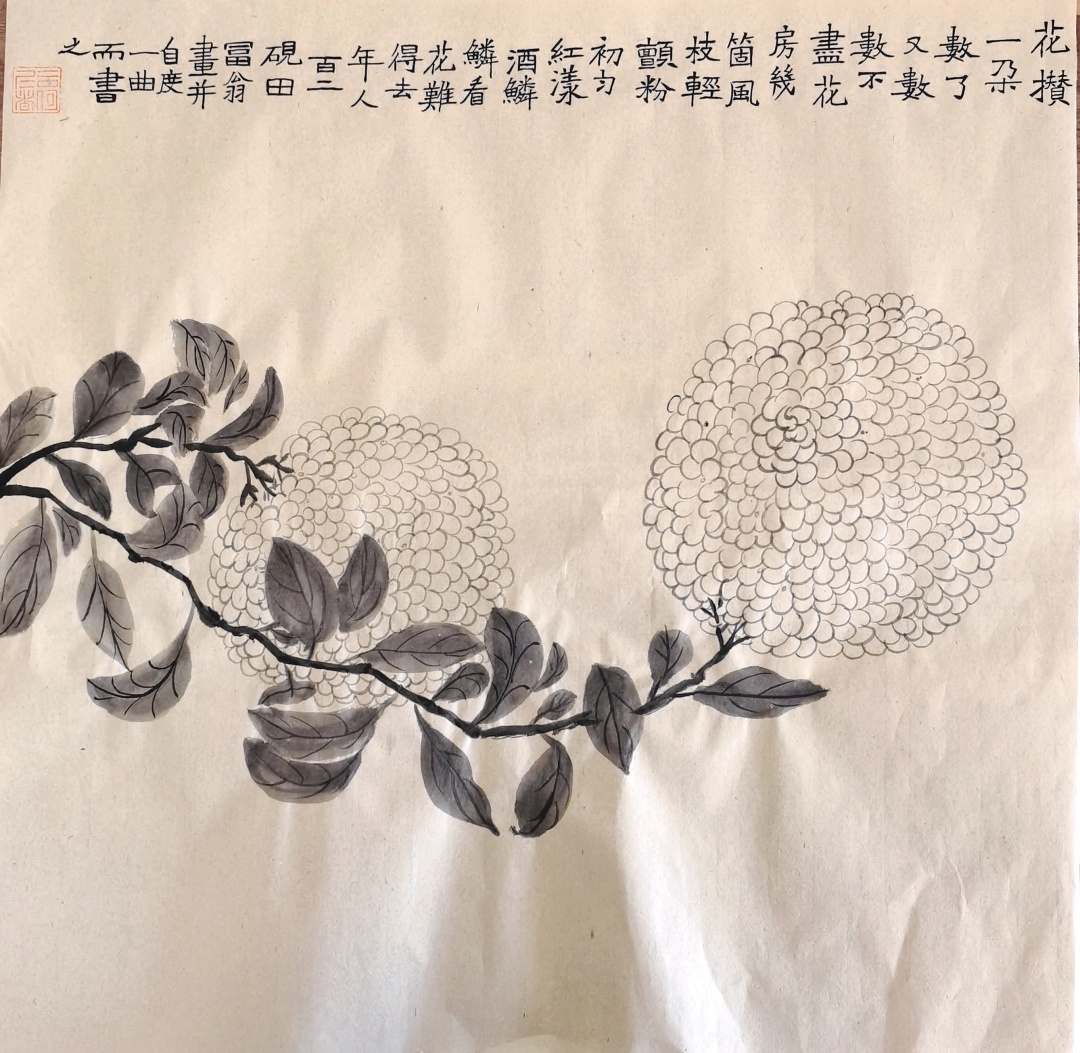 花攅
一朶
數了
又數
數不
盡花
房幾
箇風
枝輕
顫粉
初勻
紅漾
酒鱗
鱗看
花難
得去
年人
百二
硯田
冨翁
畫并
自度
一曲
而書
之